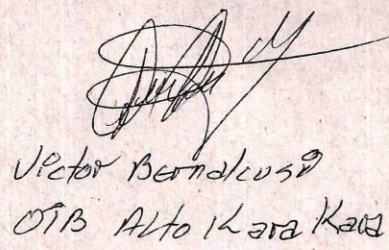 Victor Bernalcusi
OTB Alto Kara Kara